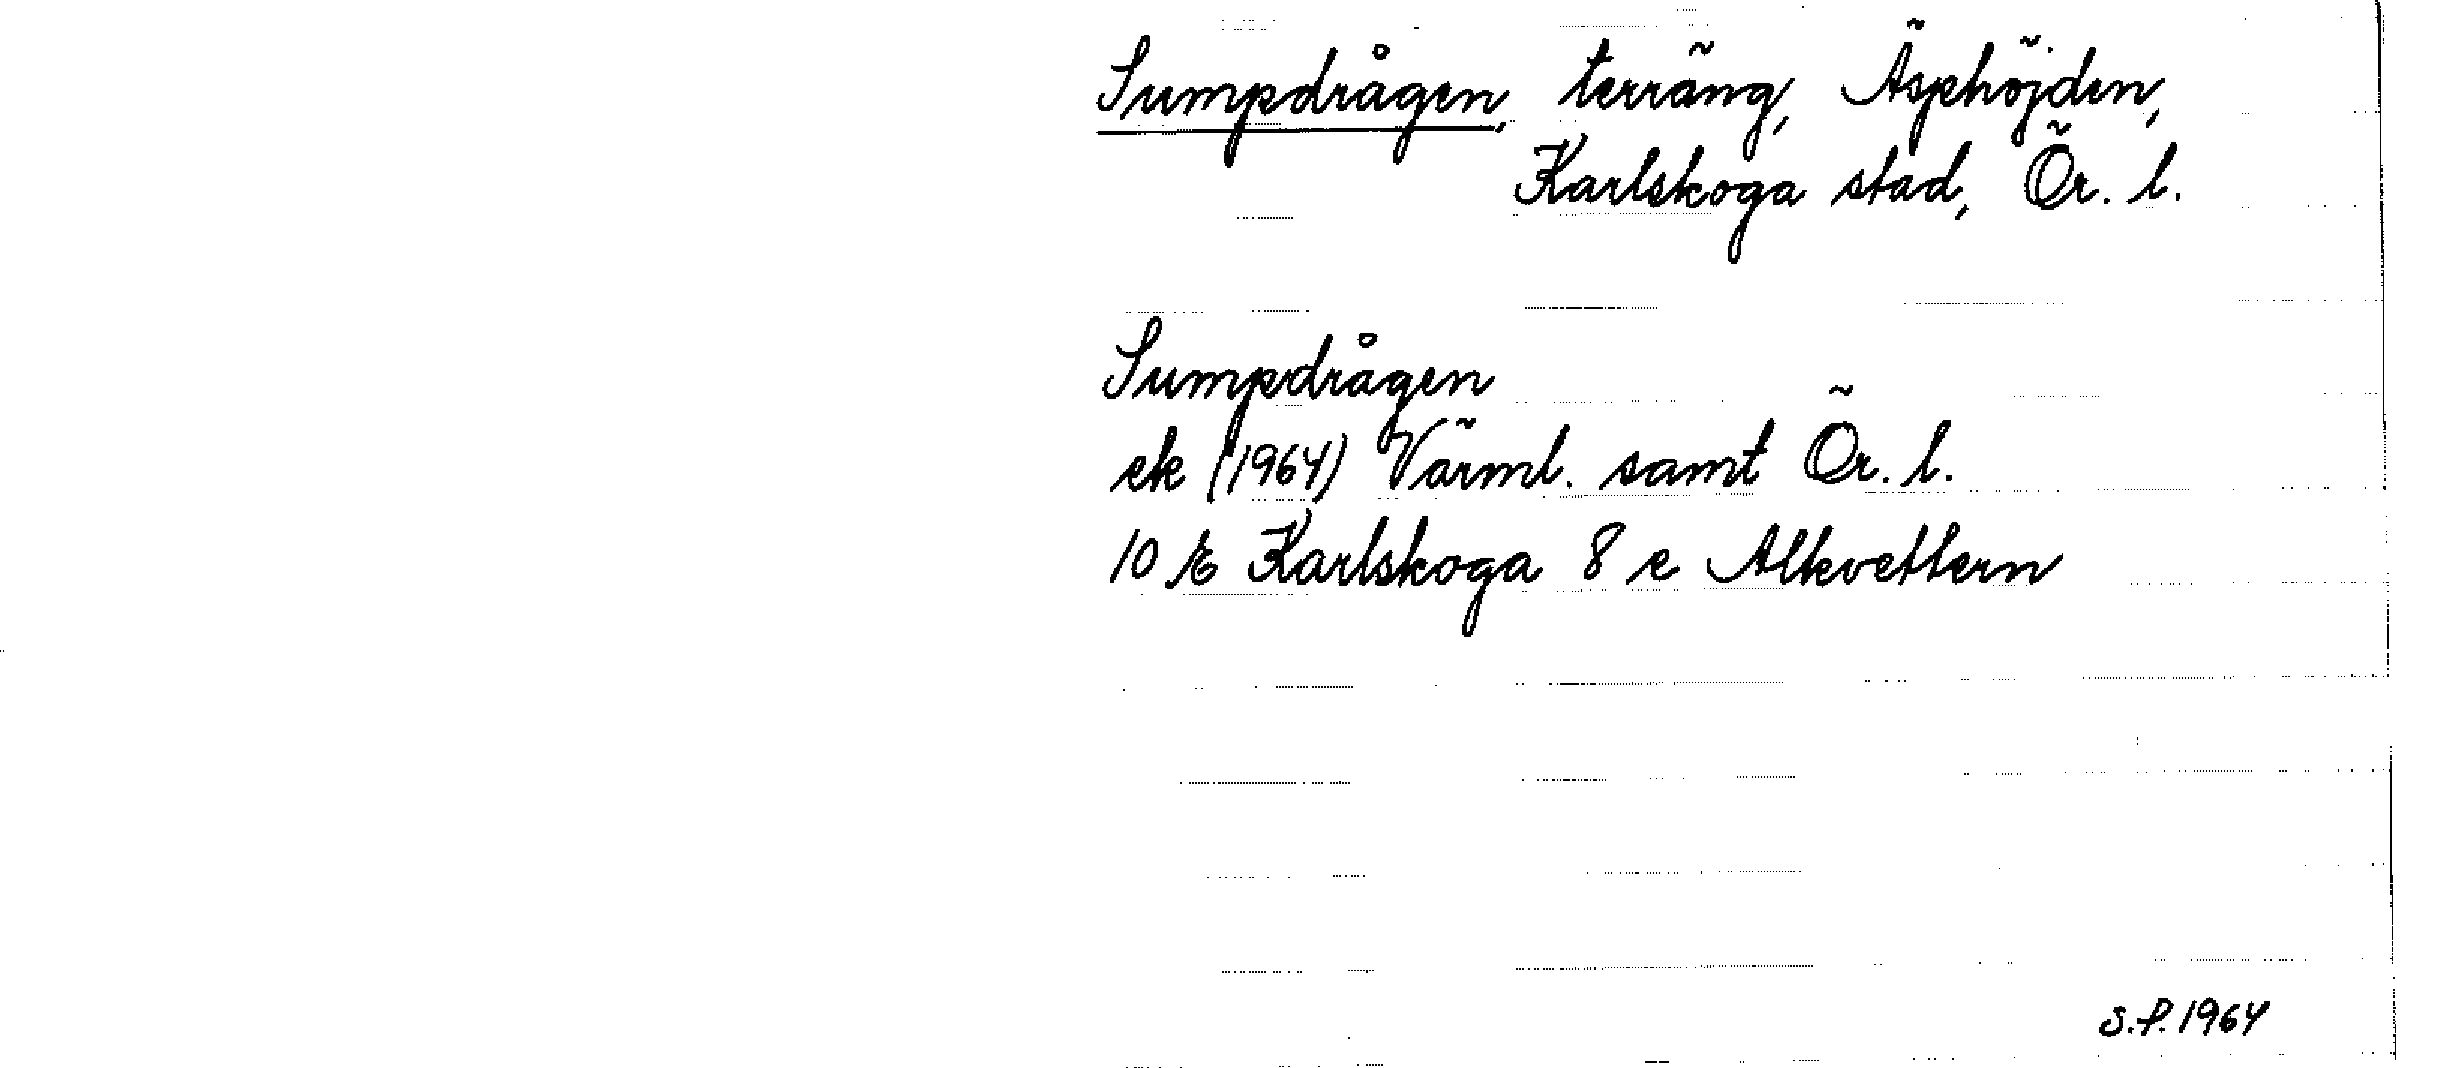 Sumpdrågen, terräng, Äsphöjden,
Karlskoga stad, Ör. l.
Sumpdrågen
ek (1964) Värml. samt Ör. l.
10 E Karlskoga 8 e Alkvettern
S.P. 1964